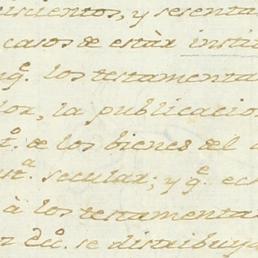 uscientos, y sesenta
casos de estàr instit
q.ᵉ los testamenta
lor, la publicacio
t.º de los bienes del
ut.ª secular; y q.ᵉ ec
à los testamenta
se distribuya